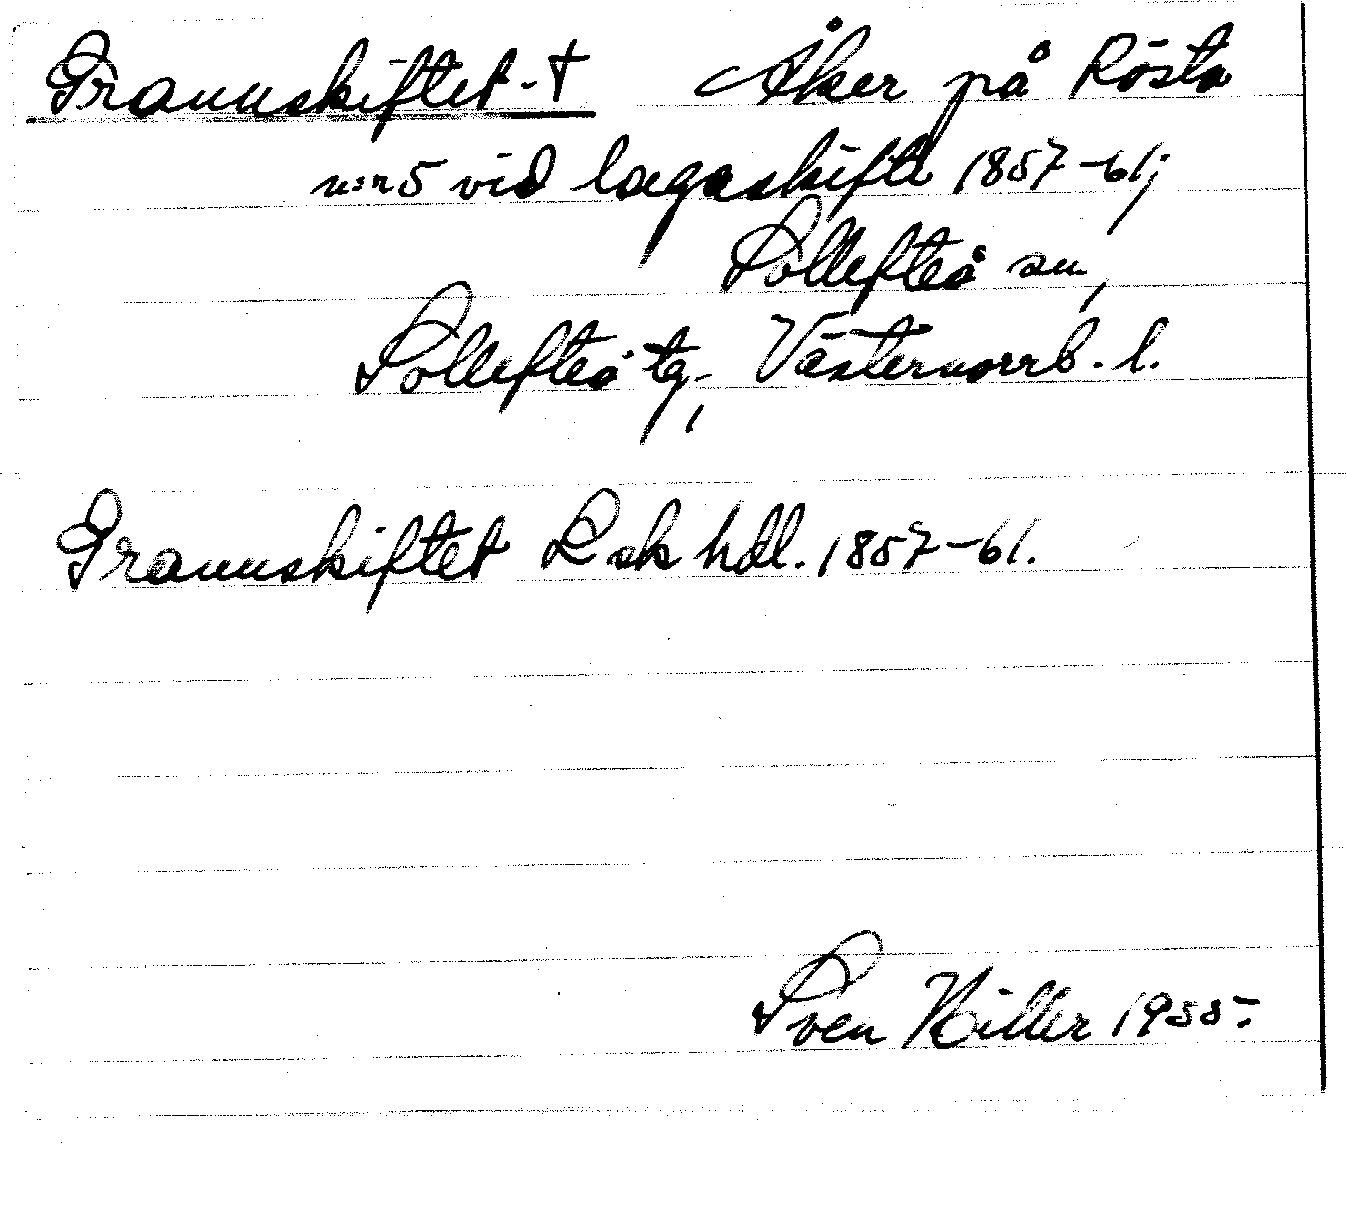 Grannskiftet.† Åker på Rösta
n:r 5 vid lagaskifte 1857-61;
Sollefteå sn,
Sollefteå tg, Västernorrl. l.
Grannskiftet Lsk hdl. 1857-61.
Sven Hiller 1955.